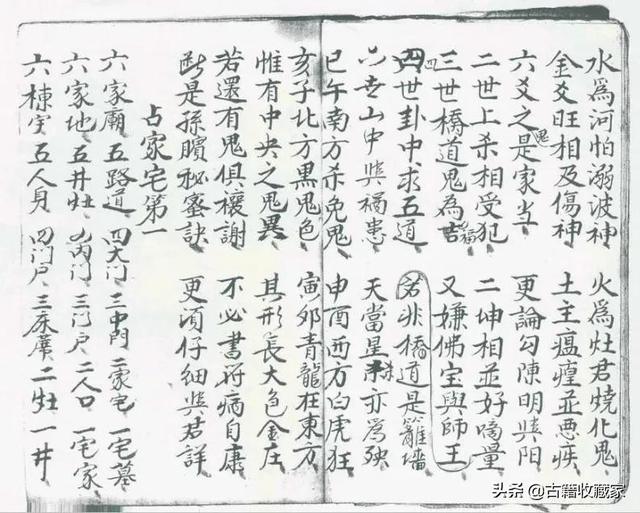 水為河怕溺波神 火為灶君燒化鬼
金爻旺相及傷神 土主瘟癀並悪疾
六爻之鬼是家当 更論勾陳明與阳
二世上杀相受犯 二坤相並好量
三世橋道鬼為吉 又嫌佛宝與師王
四世卦中求五道 若非橋道是籬墻
六世山中與禍患 天當星亦為殃
巳午南方杀免鬼 申酉西方白虎狂
亥子北方黑鬼色 寅卯青龍在東方
惟有中央之鬼異 其形長大色金庄
若還有鬼俱禳謝 不必書符病自康
此是孫臏秘蜜訣 更須仔細與君詳
占家宅第一
六家廟 五路道 四大门 三中門 二家宅 一宅墓
六家地 五井灶 四丙门 三门户 二人口 一宅家
六棟宇 五人身 四门户 三床廣 二灶 一井
头条 @古籍收藏家